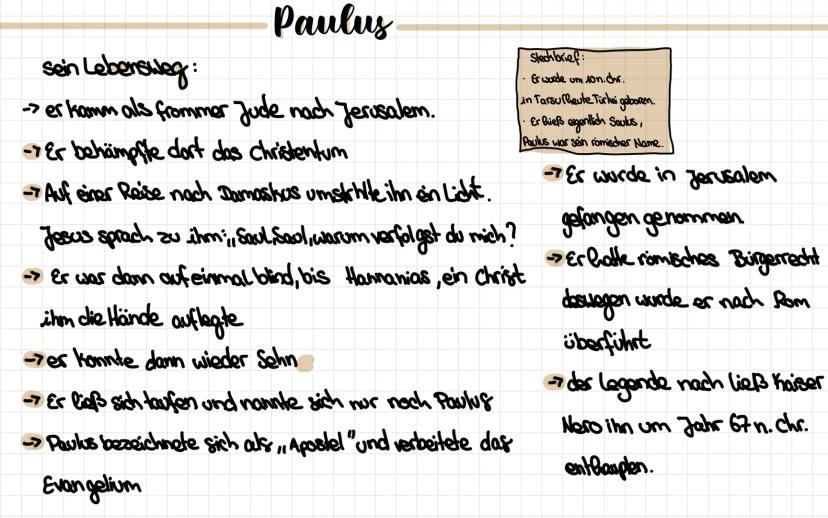 Paulus
sein Lebensweg:
-> er kamm als frommer Jude nach Jerusalem.
-> Er bekämpfte dort das Christentum
-> Auf einer Reise nach Damaskus umstrhlte ihn ein Licht.
Jesus sprach zu ihm: „Saul, Saul, warum verfolgst du mich?
-> Er war dann auf einmal blind, bis Hannanias, ein Christ
ihm die Hände auflegte
-> er konnte dann wieder Sehn
-> Er ließ sich taufen und nannte sich nur noch Paulus
-> Paulus bezeichnete sich als „Apostel" und verbeitete das
Evangelium
Steckbrief:
· Er wurde um 10 n. Chr.
in Tarsu (heute Türkei geboren.
· Er hieß eigentlich Saulus,
Paulus war sein römischer Name.
-> Er wurde in Jerusalem
gefangen genommen
-> Er hatte römisches Bürgerrecht
deswegen wurde er nach Rom
überführt
-> der Legende nach ließ Kaiser
Nero ihn um Jahr 67 n. Chr.
enthaupten.